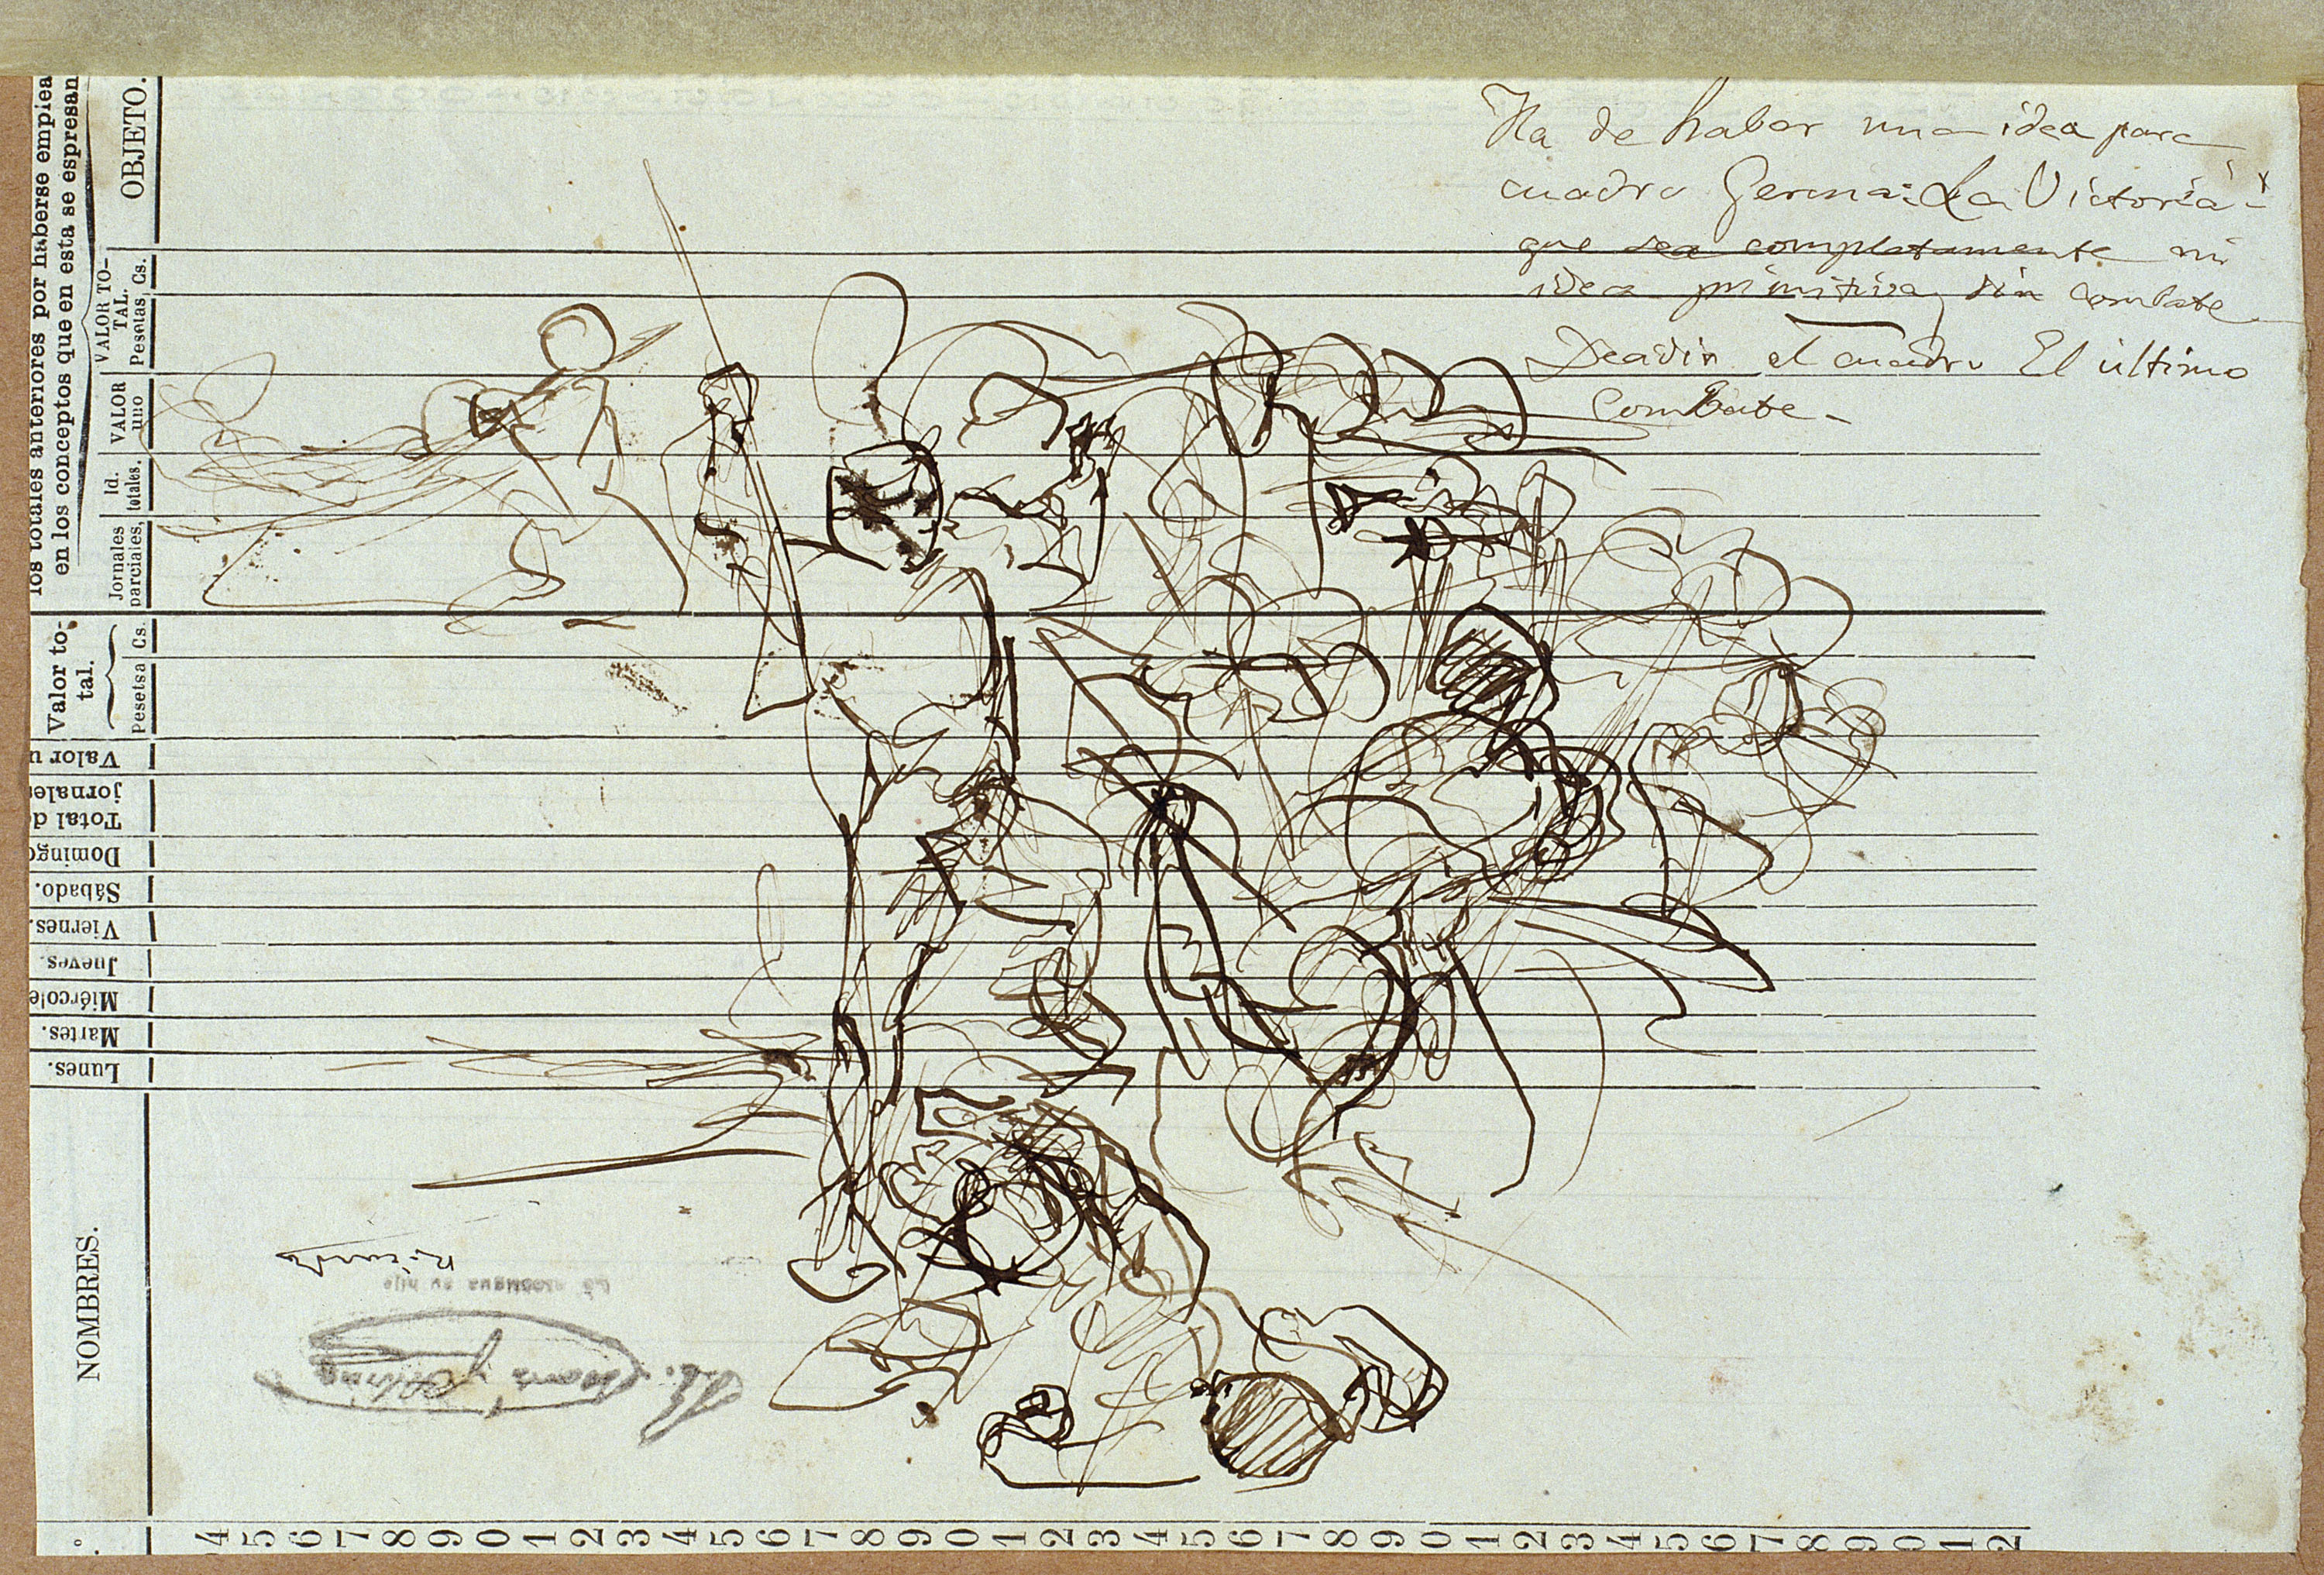 Ha de haber una idea para
cuadro Germa: La Victoria
que sea completamente mi
idea primitiva, sin combate
Decidir el cuadro El ultimo
Combate -
los totales anteriores por haberse emplea
en los conceptos que en esta se espresan
OBJETO.
VALOR TO-
TAL.
Pesetas Cs.
VALOR
uno
Id.
totales.
Jornales
parciales,
Valor to-
tal.
Pesetsa Cs.
Valor u
Total de
jornale
Domingo
Sábado.
Viernes.
Jueves.
Miércole
Martes.
Lunes.
NOMBRES.
Ricardo
4 5 6 7 8 9 0 1 2 3 4 5 6 7 8 9 0 1 2 3 4 5 6 7 8 9 0 1 2 3 4 5 6 7 8 9 0 1 2